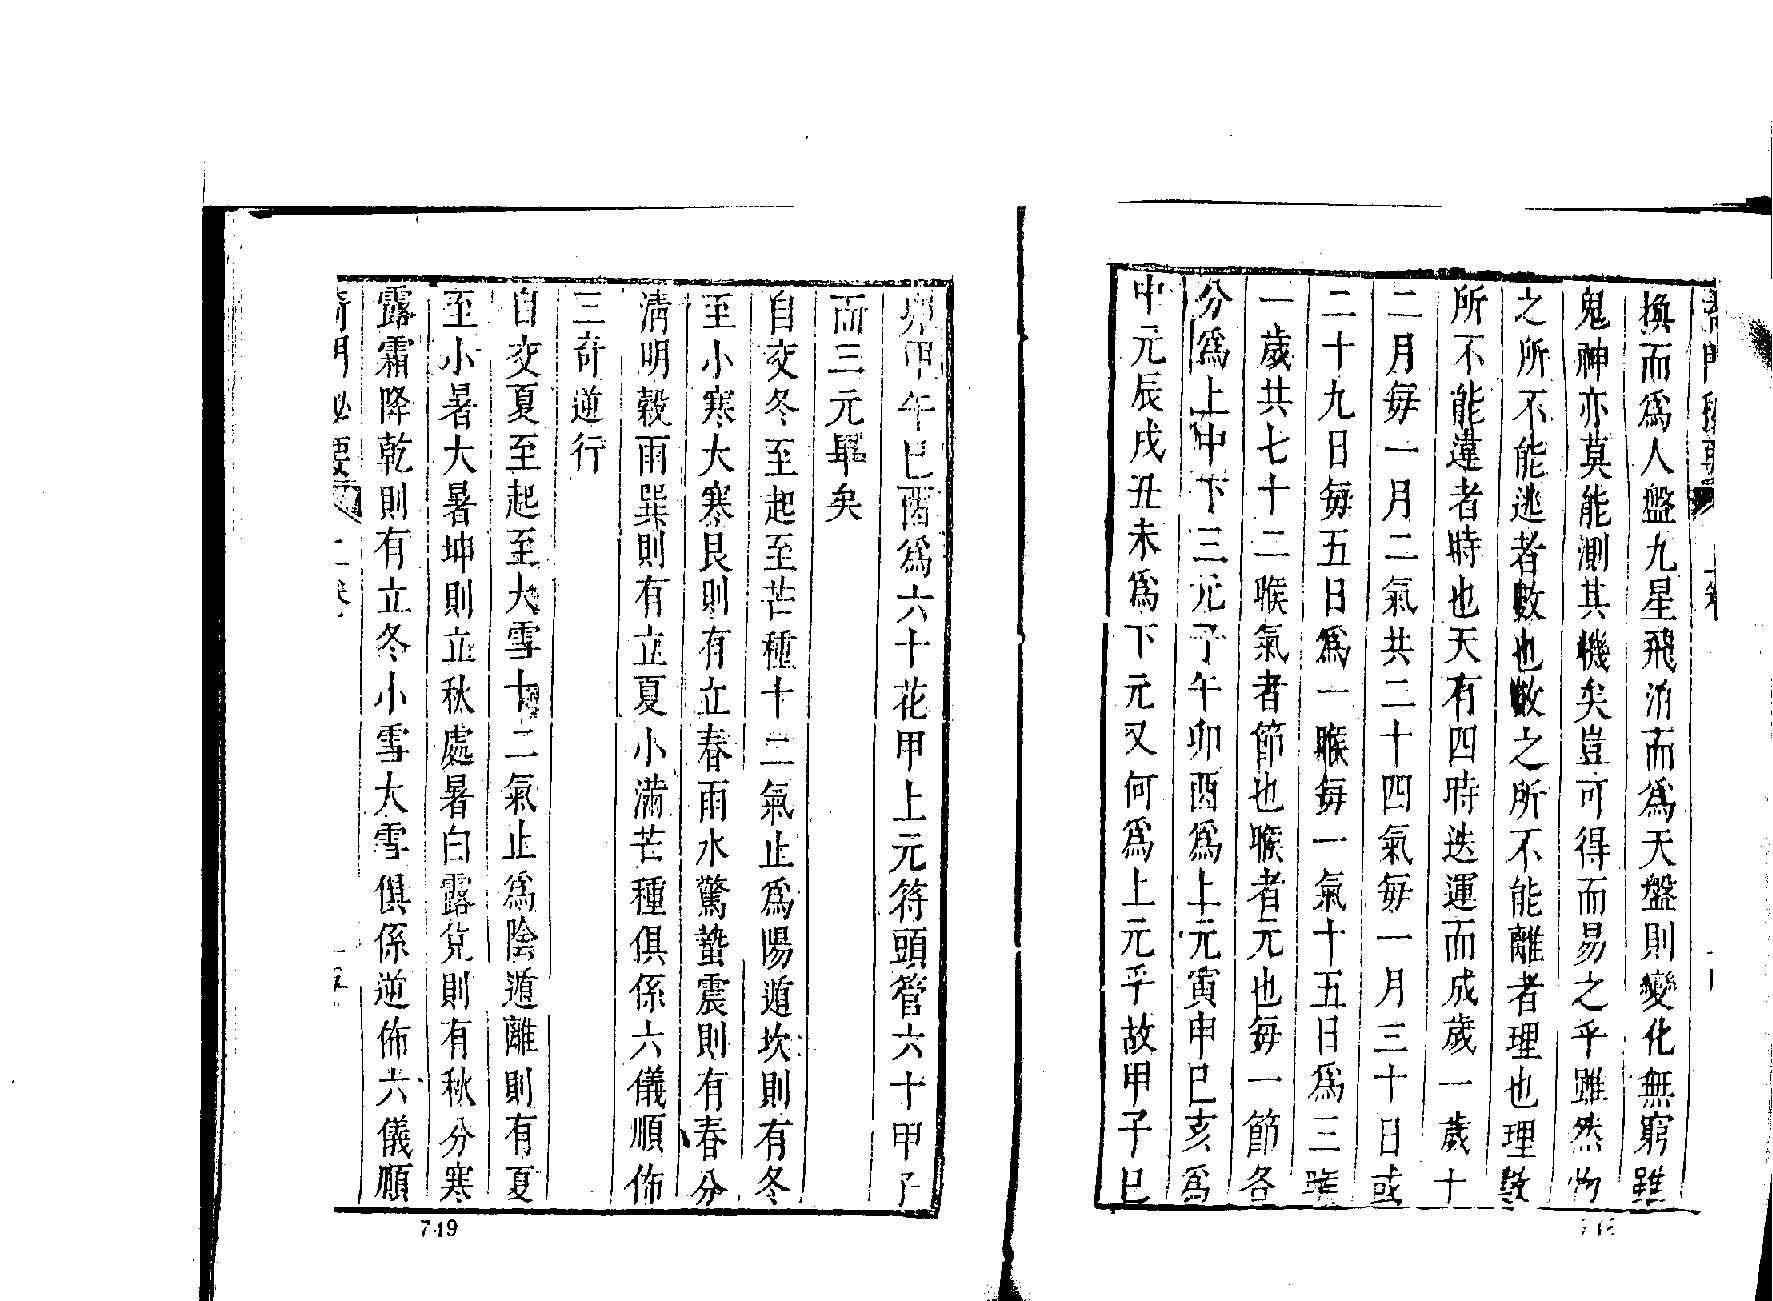 換而為人盤九星飛泊而為天盤則變化無窮雖
鬼神亦莫能測其機矣豈可得而易之乎雖然物
之所不能逃者數也數之所不能離者理也理數
所不能違者時也天有四時迭運而成歲一歲十
二月每一月二氣共二十四氣每一月三十日或
二十九日每五日為一睺每一氣十五日為三睺
一歲共七十二睺氣者節也睺者元也每一節各
分為上中下三元子午卯酉為上元寅申巳亥為
中元辰戌丑未為下元又何為上元乎故甲子巳
卯甲午巳酉為六十花甲上元符頭管六十甲子
而三元畢矣
自交冬至起至芒種十二氣止為陽遁坎則有冬
至小寒大寒艮則有立春雨水驚蟄震則有春分
清明穀雨巽則有立夏小滿芒種俱係六儀順佈
三奇逆行
自交夏至起至大雪十二氣止為陰遁離則有夏
至小暑大暑坤則立秋處暑白露兌則有秋分寒
露霜降乾則有立冬小雪大雪俱係逆佈六儀順
749